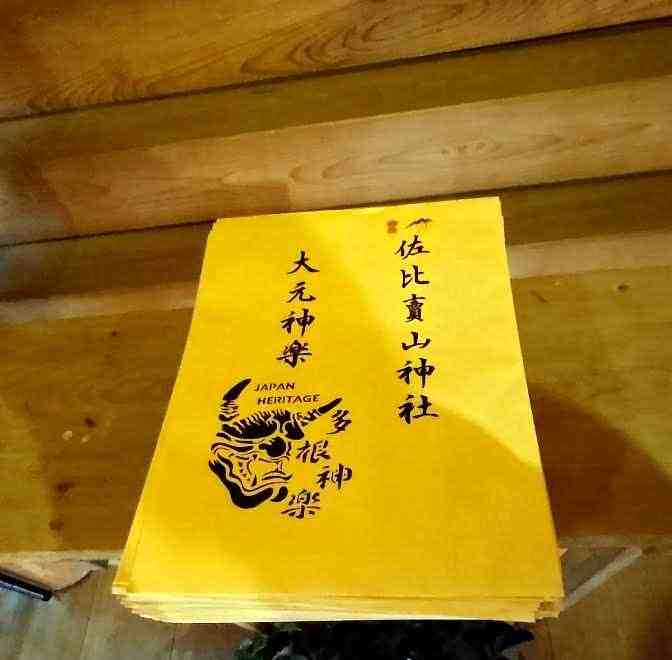 佐比賣山神社
大元神楽
JAPAN
HERITAGE
多根神楽